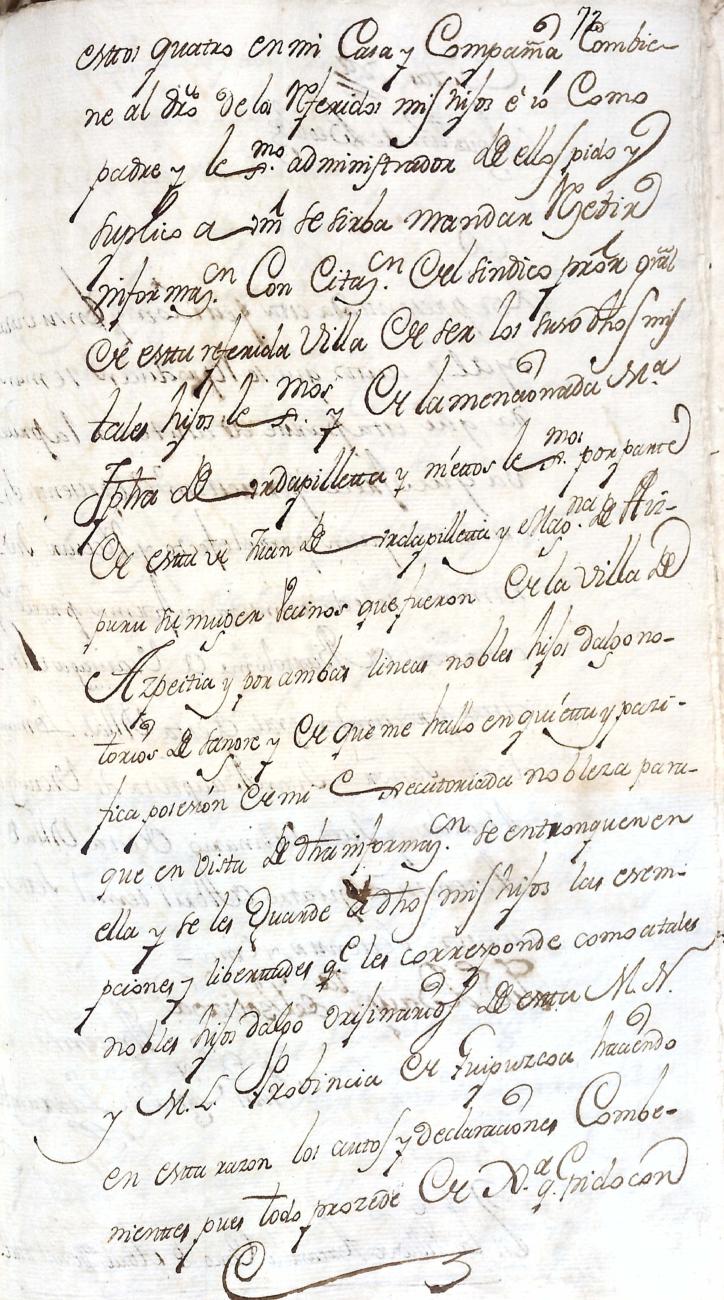 72
esttos quatro en mi Casa y Compañia Combie-
ne al dro. de los Referidos mis hijos é io Como
padre y le xmo. administrador de ellos pido y
suplico a Vm se sirba mandar Rezevir
informazn. Con Citazn. del sindico pror. gral
de estta referida Villa de ser los suso dhos mis
tales hijos lexmos. y de la mencionada Ma.
Jpha de indapilletta y niettos lexmos. por parte
de estta de Juan de indapilletta y Magna. de Az-
puru su muger vecinos que fueron de la Villa de
Azpeitia y por ambas lineas nobles hijos dalgo no-
torios de sangre y de que me hallo en quietta y pazi-
fica posesión de mi Executoriada nobleza para-
que en vista de dha informazn. se entronquen en
ella y se les Guarde a dhos mis hijos las exem-
pciones y libertades qe. les corresponde como a tales
nobles hijos dalgo orijinarios de estta M. N.
y M. L. Probincia de Guipuzcoa haciendo
en estta razon los autos y declaraciones Combe-
nienttes pues todo prozede de Xa. q. pido con